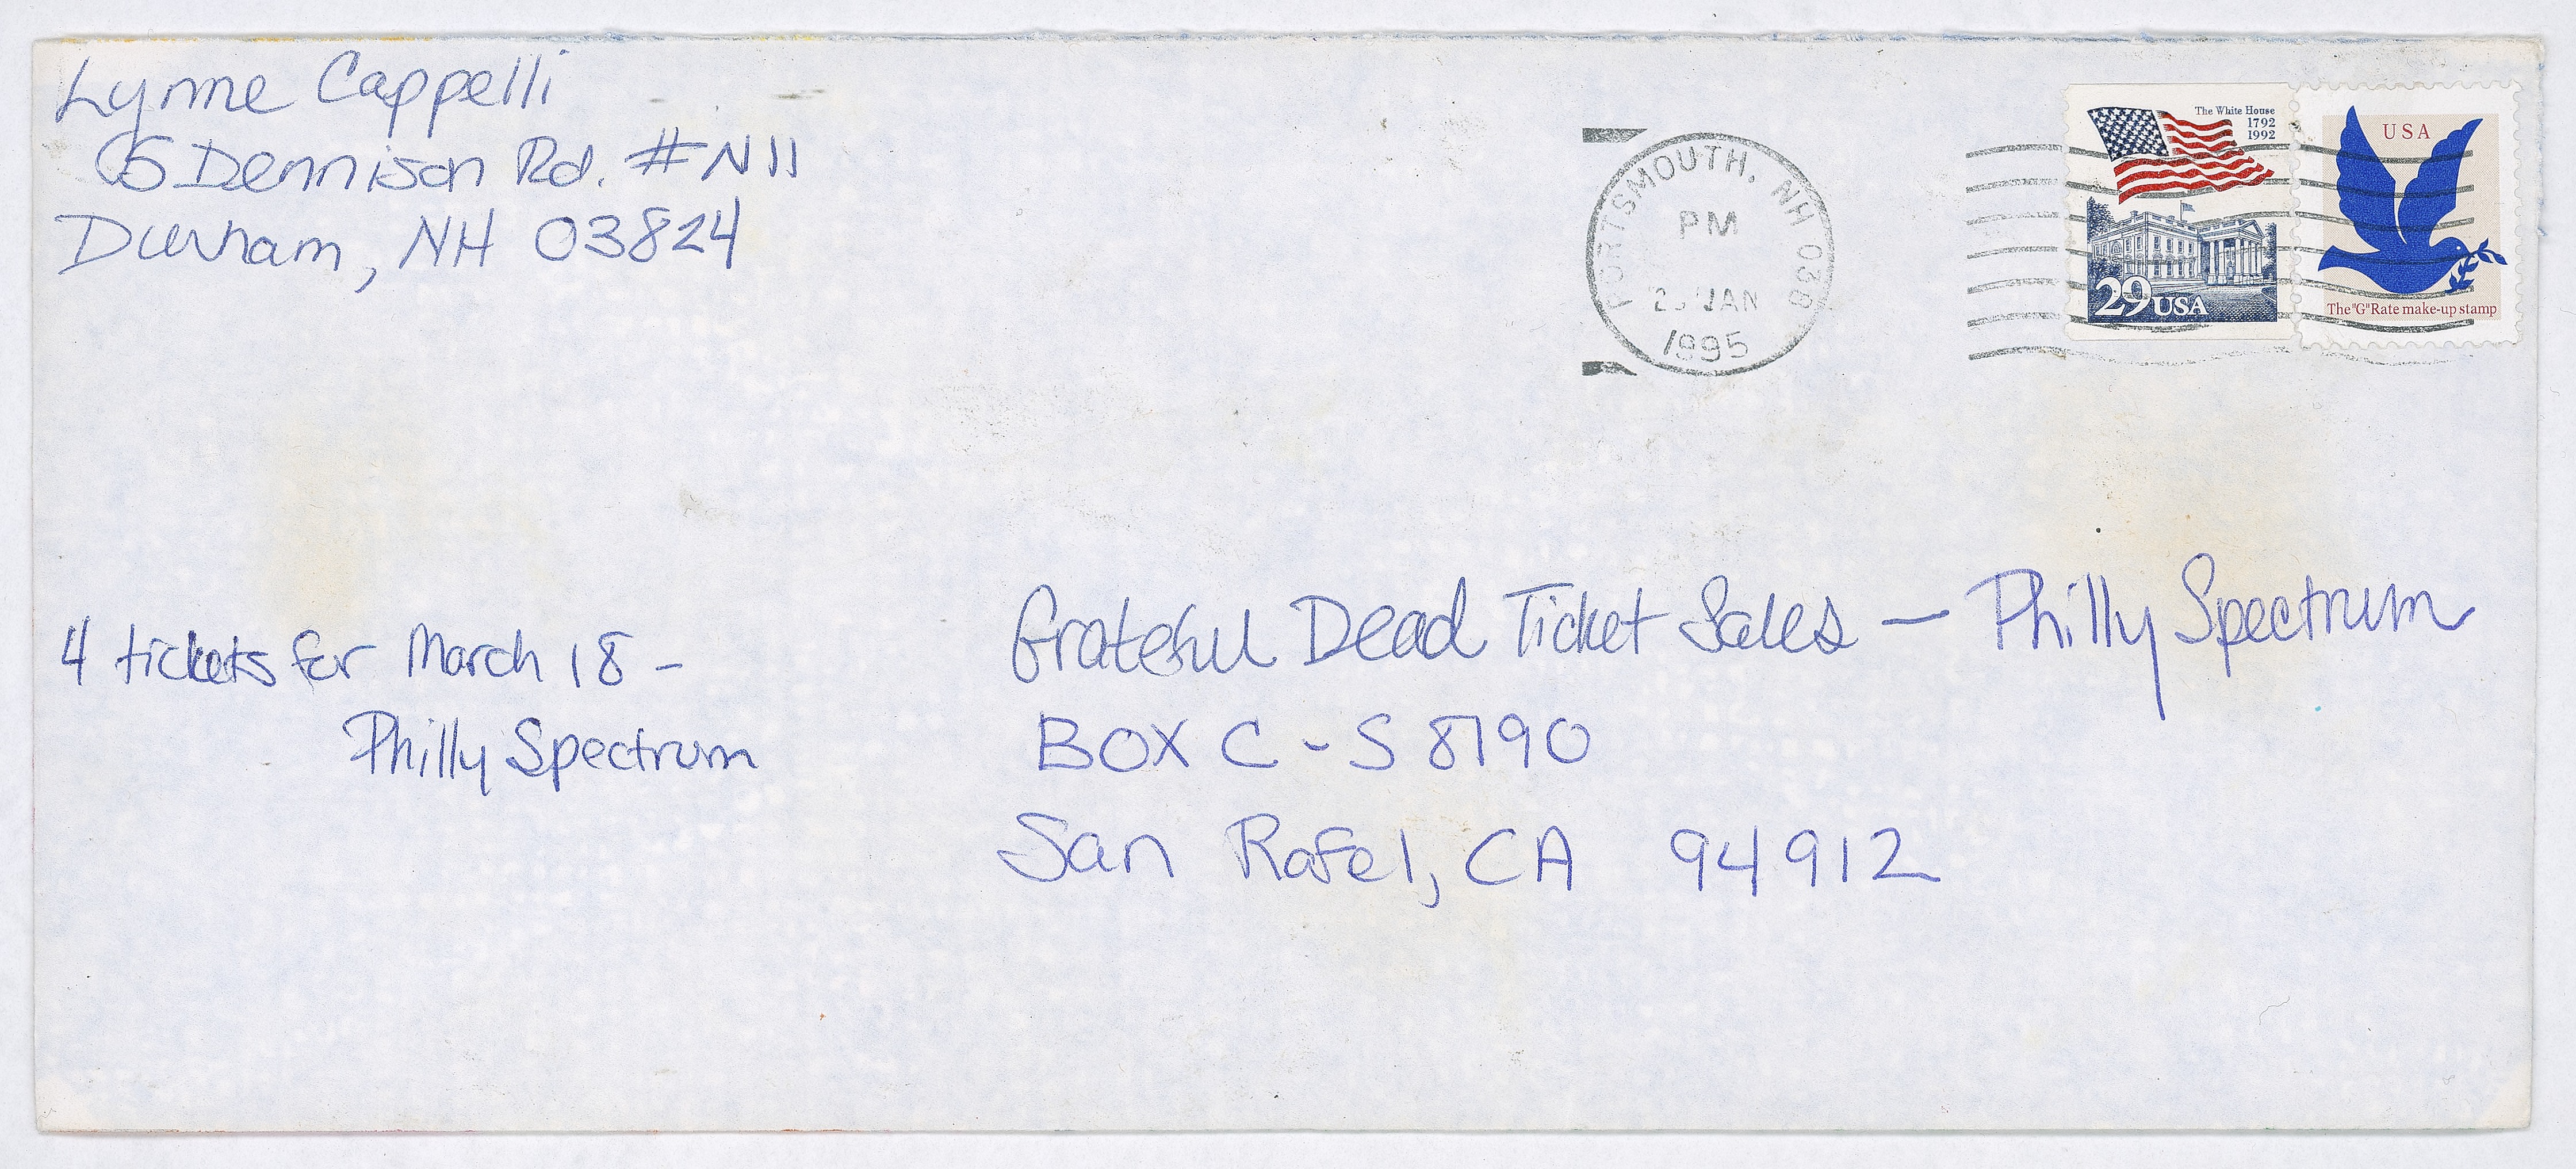 Lynne Cappelli
5 Dennison Rd. #N11
Durham, NH 03824
PORTSMOUTH, NH 038
PM
JAN
1995
The White House
1792
1992
29 USA
USA
The "G" Rate make-up stamp
4 tickets for March 18 -
Philly Spectrum
Grateful Dead Ticket Sales — Philly Spectrum
BOX C - S 8190
San Rafel, CA 94912